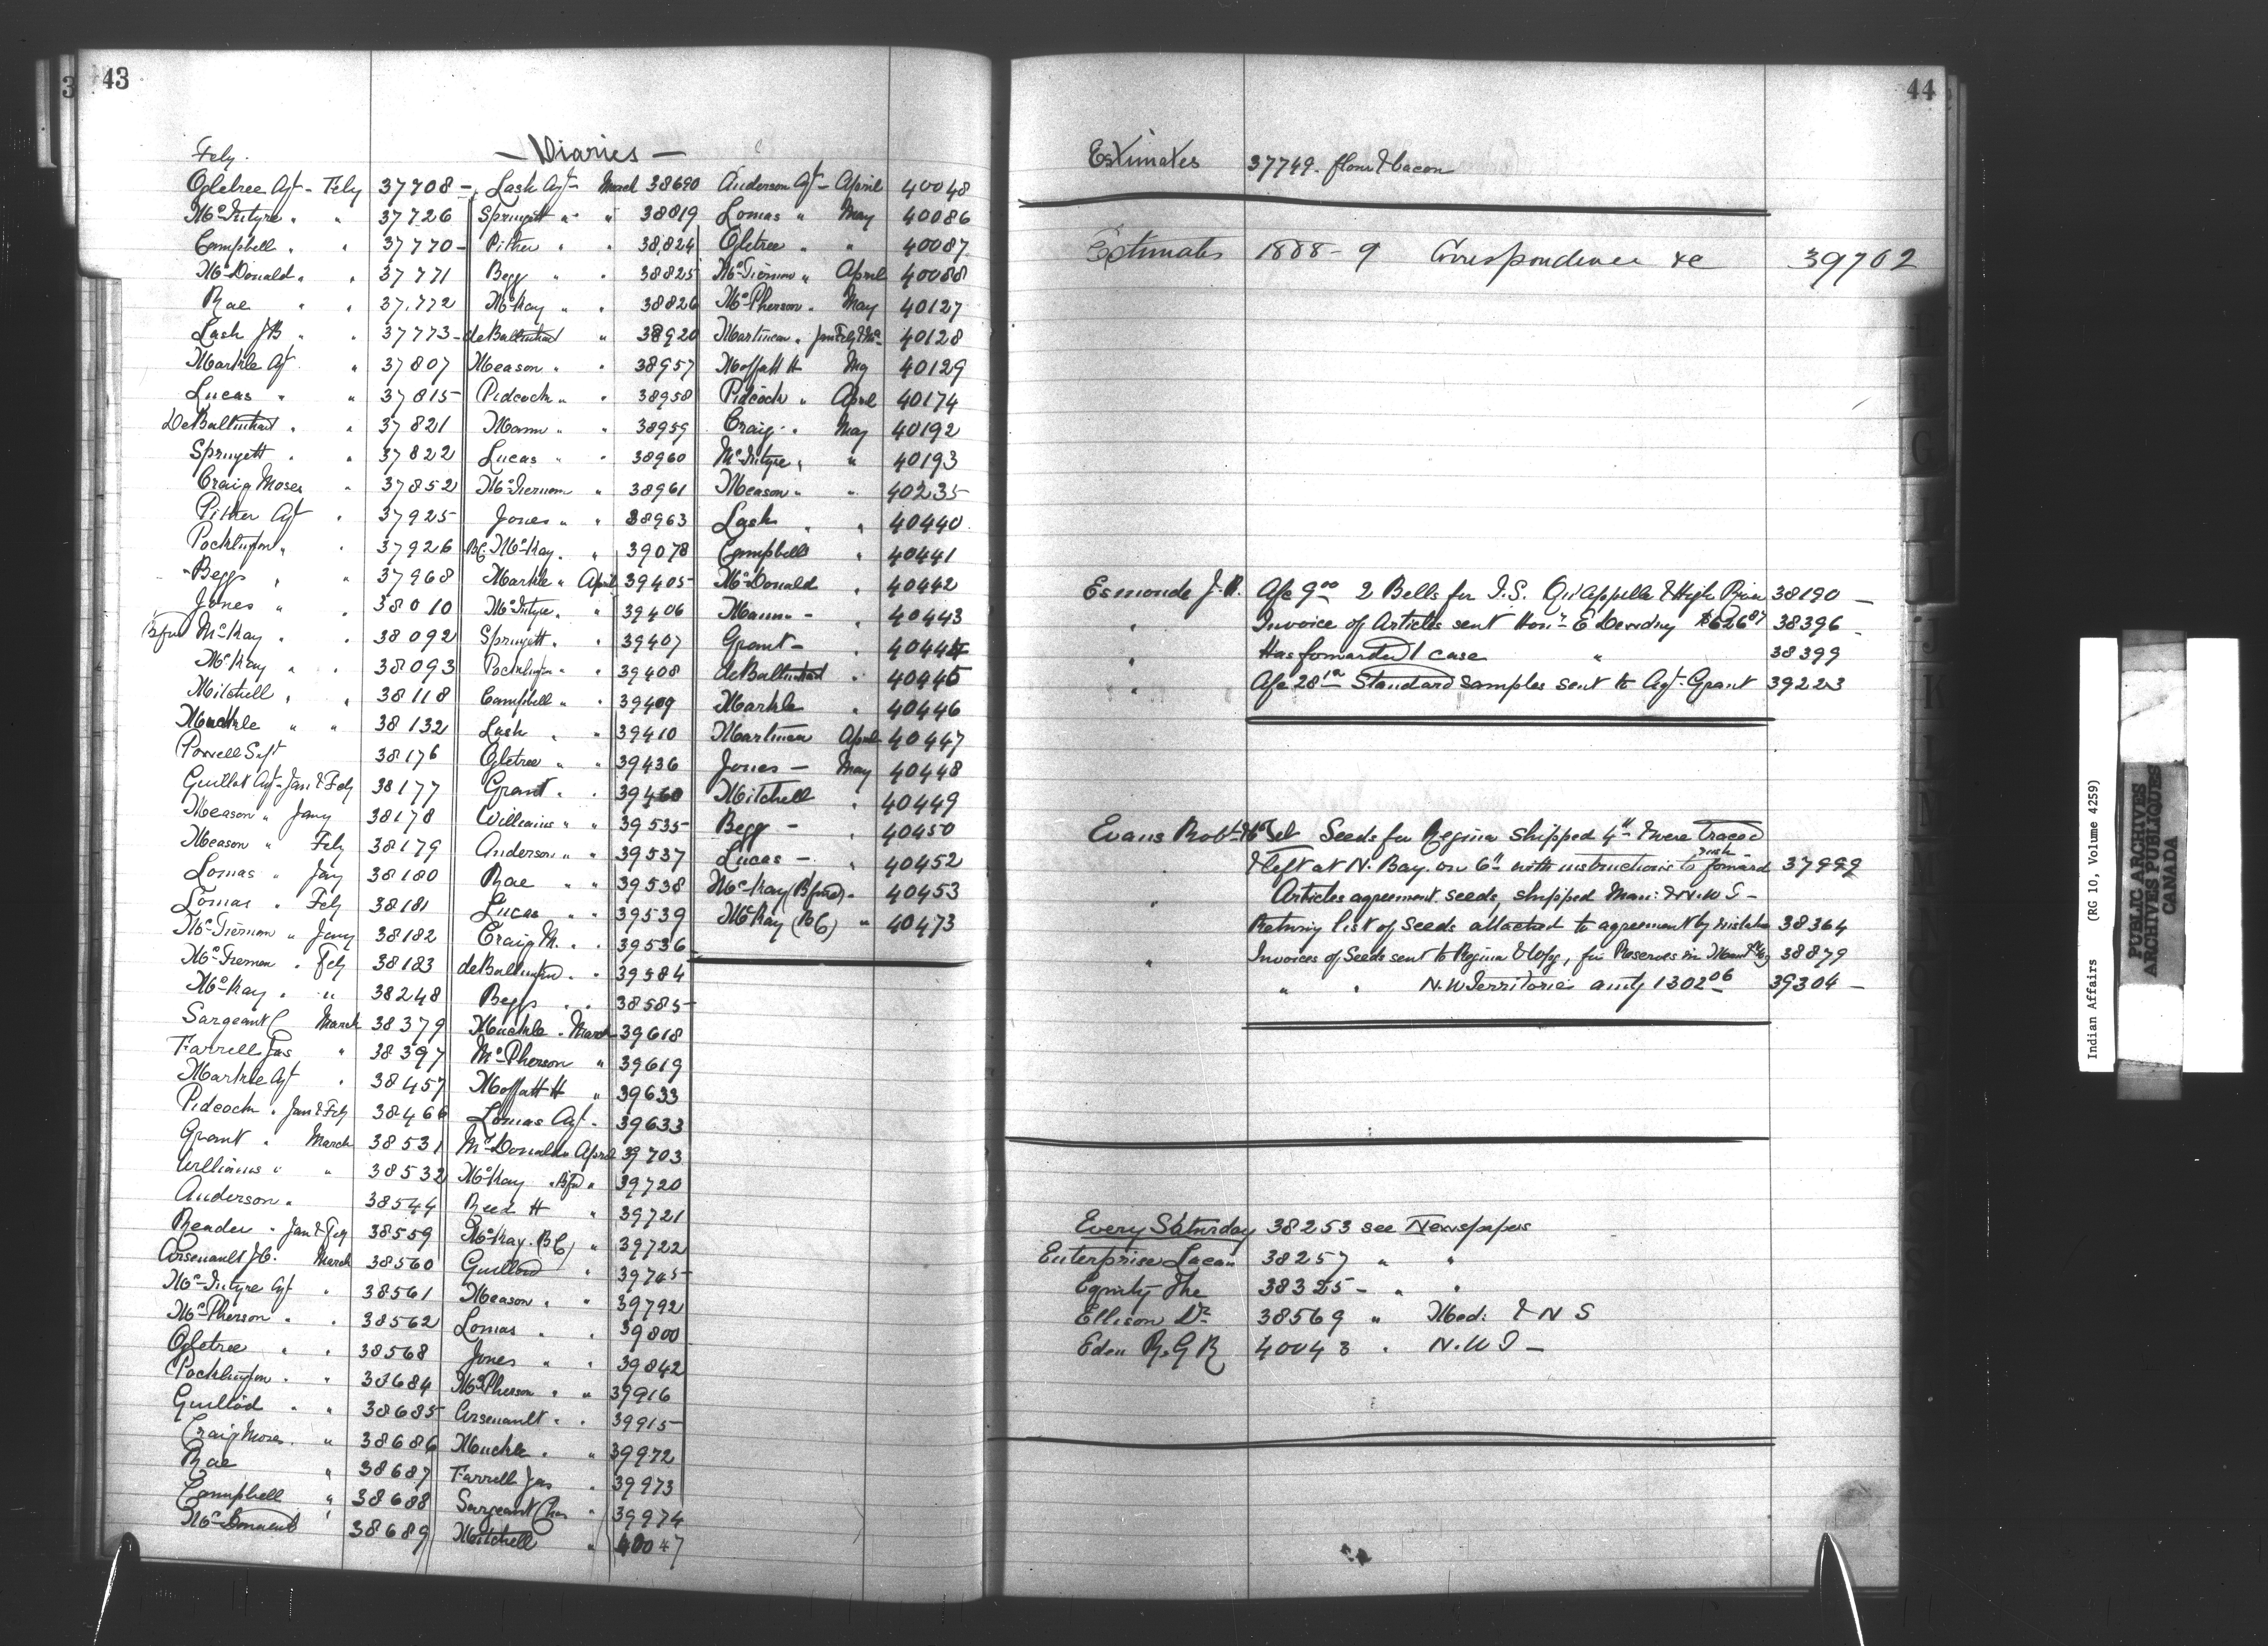 43
Fely.
— Diaries —
Ogletree Agt - Fely 37708 -
McIntyre " " 37726
Campbell " " 37770 -
McDonald " " 37771
Rae " " 37772
Lash JB " " 37773 -
Markle Agt " 37807
Lucas " " 37815
DeBalinhard " " 37821
Springett " " 37822
Craig Moses " 37852
Pither Agt " 37925
Pocklington " " 37926
Beggs " " 37968
Jones " " 38010
Bfud McKay " 38092
McKay " " 38093
Mitchell " " 38118
Muckle " " 38132
Powell Supt 38176
Guillod Agt - Jan & Fely 38177
Meason " Jany 38178
Meason " Fely 38179
Lomas " Jany 38180
Lomas " Fely 38181
McTiernan " Jany 38182
McTiernan " Fely 38183
McKay " " 38248
Sargeant C March 38379
Farrell Jas " 38397
Markle Agt " 38457
Pidcock " Jan & Fely 38466
Grant " March 38531
Williams " " 38532
Anderson " 38544
Reader " Jan & Fely 38559
Arsenault J.C. March 38560
McIntyre Agt " 38561
McPherson " " 38562
Ogletree " " 38568
Pocklington " " 38684
Guillod " " 38685
Craig Moses " 38686
Rae " 38687
Campbell " 38688
McDonald " 38689
Lash Agt - March 38690
Springett " " 38819
Pither " " 38824
Begg " " 38825
McKay " " 38826
deBalinhard " 38920
Meason " " 38957
Pidcock " " 38958
Mann " " 38959
Lucas " " 38960
McTiernan " 38961
Jones " " 38963
BC. McKay " " 39078
Markle " April 39405
McIntyre " " 39406
Springett " " 39407
Pocklington " " 39408
Campbell " " 39409
Lash " " 39410
Ogletree " " 39436
Grant " " 39460
Williams " " 39535
Anderson " " 39537
Rae " " 39538
Lucas " " 39539
Craig M. " " 39536
deBalinhard " " 39584
Beggs " " 38585
Muckle " March 39618
McPherson " 39619
Moffatt H " 39633
Lomas Agt " 39633
McDonald " April 39703
McKay " Bfd " 39720
Reed H " 39721
McKay (BC) " 39722
Guillod " 39745
Meason " " 39792
Lomas " " 39800
Jones " " 39842
McPherson " " 39916
Arsenault " " 39915
Muckle " " 39972
Farrell Jas " 39973
Sargeant Chas " 39974
Mitchell " 40047
Anderson Agt - April 40048
Lomas " May 40086
Ogletree " " 40087
McTiernan " April 40088
McPherson " May 40127
Martineau " Jan Fely & Ma 40128
Moffatt H May 40129
Pidcock " April 40174
Craig " May 40192
McIntyre " " 40193
Meason " " 40235
Lash " " 40440
Campbell " 40441
McDonald " 40442
Mann - " 40443
Grant - " 40444
deBalinhard " 40445
Markle " 40446
Martineau April 40447
Jones - May 40448
Mitchell " 40449
Begg - " 40450
Lucas - " 40452
McKay (Bfud) " 40453
McKay (BC) " 40473
44
Estimates 37749. flour & bacon
Estimates 1888-9 Correspondence &c 39702
Esmonde J.R. A/c 9.00 2 Bells for I.S. Qu'Appelle & High River 38190 -
" Invoice of Articles sent Hon. E Dewdney $626.87 38396 -
" Has forwarded 1 case " 38399
" A/c 28 Standard Samples sent to Agt. Grant 39223
Evans Robt Seeds for Regina shipped 4th & were traced
& left at N. Bay on 6th with instructions to rush forward 37999
" Articles agreement seeds, shipped Man: & N.W T -
Returng list of Seeds attached to agreement by mistake 38364
" Invoices of Seeds sent to Regina & Wpg, for Reserves in 38879
" " N.W Territories amtg 1302.06 39304 -
Every Saturday 38253 see Newspapers
Enterprise 38257 " "
Equity The 38325 - " "
Ellison Dr 38569 " Med: & N S
Eden R.G R 40043 " N.W T -
Indian Affairs (RG 10, Volume 4259)
PUBLIC ARCHIVES
ARCHIVES PUBLIQUES
CANADA